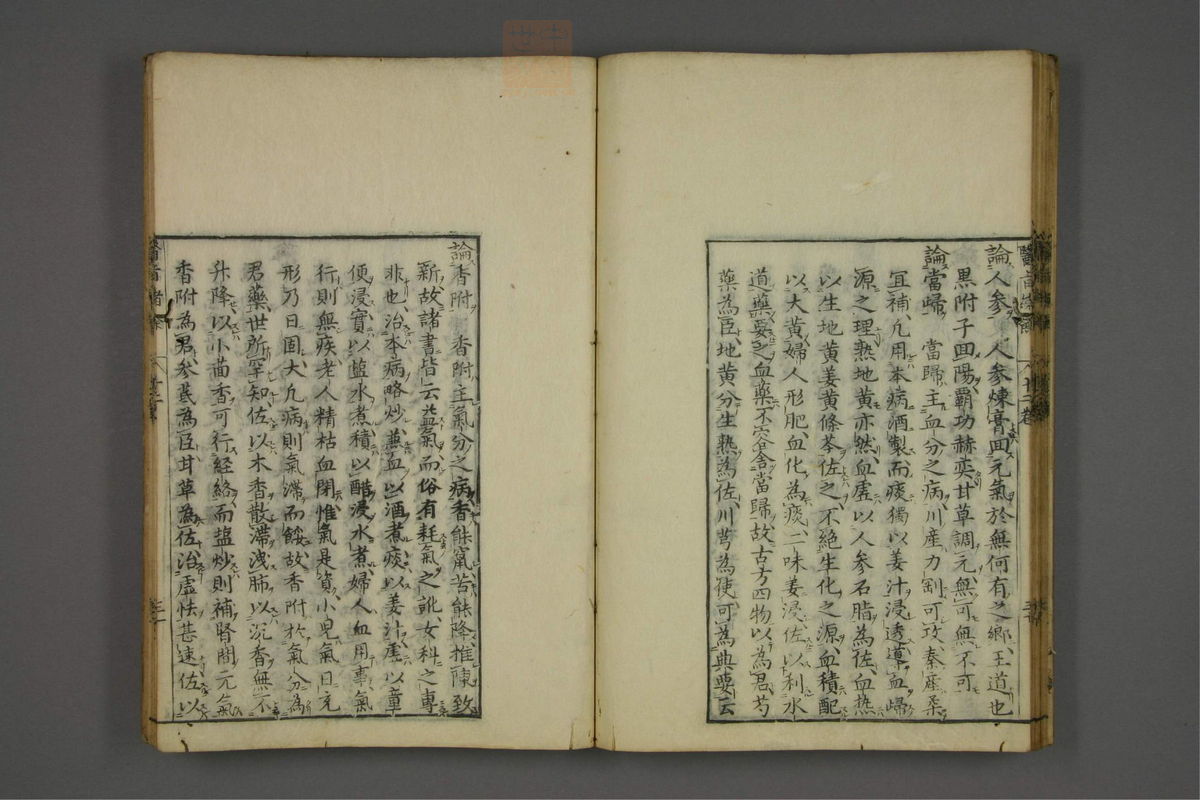 論人參 人參煉膏回元氣於無何有之郷王道也
黒附子回陽覇功赫奕甘草調元無可無不可
論當歸 當歸主血分之病川産力剛可攻秦産柔
宜補凢用本病酒製而痰獨以姜汁浸透導血歸
源之理熟地黄亦然血虚以人參石脂為佐血熱
以生地黄姜黄條芩佐之不絶生化之源血積配
以大黄婦人形肥血化為痰二味姜浸佐以利水
道藥要之血藥不容舍當歸故古方四物以為君芍
藥為臣地黄分生熟為佐川芎為使可為典要云
論香附 香附主氣分之病香能竄苦能降推陳致
新故諸書皆云益氣而俗有耗氣之訛女科之專
非也治本病略炒兼血以酒煮痰以姜汁虚以童
便浸實以塩水煮積以醋浸水煮婦人血用事氣
行則無疾老人精枯血閉惟氣是資小児氣日充
形乃日固大凢病則氣滞而餒故香附於氣分為
君藥世所罕知佐以木香散滞洩肺以沉香無不
升降以小茴香可行経絡而塩炒則補腎間元氣
香附為君參芪為臣甘草為佐治虚怯甚速佐以